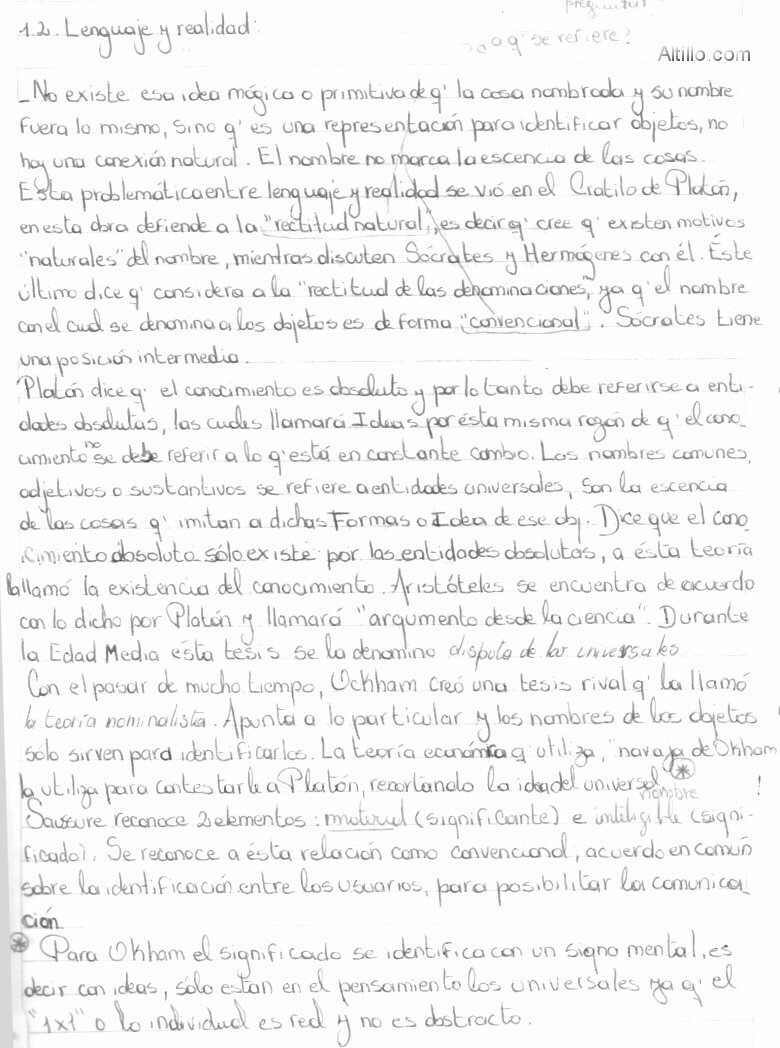 preguntar
1.2. Lenguaje y realidad:
a q' se refiere?
Altillo.com
_No existe esa idea mágica o primitiva de q' la cosa nombrada y su nombre
fuera lo mismo, sino q' es una representación para identificar objetos, no
hay una conexión natural. El nombre no marca la escencia de las cosas.
Esta problemática entre lenguaje y realidad se vió en el Cratilo de Platón,
en esta obra defiende a la "rectitud natural", es decir q' cree q' existen motivos
"naturales" del nombre, mientras discuten Sócrates y Hermógenes con él. Éste
último dice q' considera a la "rectitud de las denominaciones", ya q' el nombre
con el cual se denomina a los objetos es de forma "convencional". Sócrates tiene
una posición intermedia.
Platón dice q' el conocimiento es absoluto y por lo tanto debe referirse a enti-
dades absolutas, las cuales llamará Ideas por ésta misma razón de q' el cono_
cimiento no se debe referir a lo q' está en constante cambio. Los nombres comunes,
adjetivos o sustantivos se refiere a entidades universales, son la escencia
de las cosas q' imitan a dichas Formas o Idea de ese obj. Dice que el cono
cimiento absoluto sólo existe por las entidades absolutas, a ésta teoría
la llamó la existencia del conocimiento. Aristóteles se encuentra de acuerdo
con lo dicho por Platón y llamará "argumento desde la ciencia". Durante
la Edad Media ésta tesis se la denomino disputa de los universales
Con el pasar de mucho tiempo, Ockham creó una tesis rival q' la llamó
la teoría nominalista. Apunta a lo particular y los nombres de los objetos
solo sirven para identificarlos. La teoría económica q' utiliza, "navaja de Okham
la utiliza para contestarle a Platón, recortando la idea del universal ⊛
nombre !
Saussure reconoce 2 elementos: material (significante) e inteligible (signi-
ficado). Se reconoce a ésta relación como convencional, acuerdo en común
sobre la identificación entre los usuarios, para posibilitar la comunica_
ción.
⊛ Para Okham el significado se identifica con un signo mental, es
decir con ideas, sólo estan en el pensamiento los universales ya q' el
"1x1" o lo individual es real y no es abstracto.